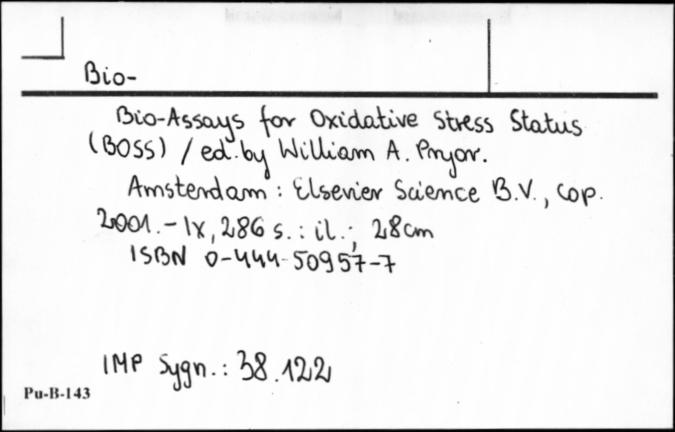 Bio-
Bio-Assays for Oxidative Stress Status
(BOSS) / ed. by William A. Pryor.
Amsterdam : Elsevier Science B.V., cop.
2001. - IX, 286 s. : il. ; 28cm
ISBN 0-444-50957-7
IMP Sygn. : 38.122
Pu-B-143